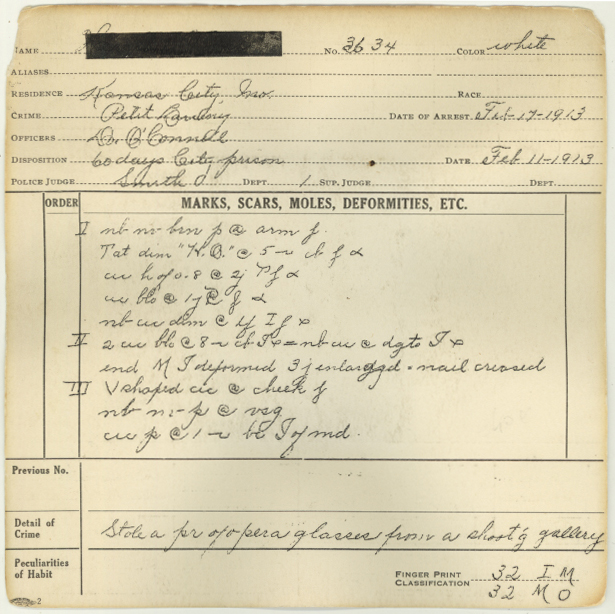 NAME No. 3634 COLOR white
ALIASES
RESIDENCE Kansas City, Mo. RACE
CRIME Petit Larceny DATE OF ARREST Feb-17-1913
OFFICERS D. O'Connell
DISPOSITION 60 days City prison DATE Feb 11-1913
POLICE JUDGE Smith O DEPT. 1 SUP. JUDGE DEPT.
ORDER MARKS, SCARS, MOLES, DEFORMITIES, ETC.
I nb nv brn p @ arm f.
Tat dim "H.O." @ 5
cic h of 0-8 @ 2j
cic blc @ 1j f
nb cic dim @
II 2 cic blc @ 8 nb cic @ dgts I
end M I deformed 3j enlarged - nail creased
III V shaped cic @ cheek f
nb nv p @
cic p @ 1 md.
Previous No.
Detail of Crime Stole a pr of opera glasses from a shoot'g gallery
Peculiarities of Habit
FINGER PRINT CLASSIFICATION 32 I M
32 M O
2